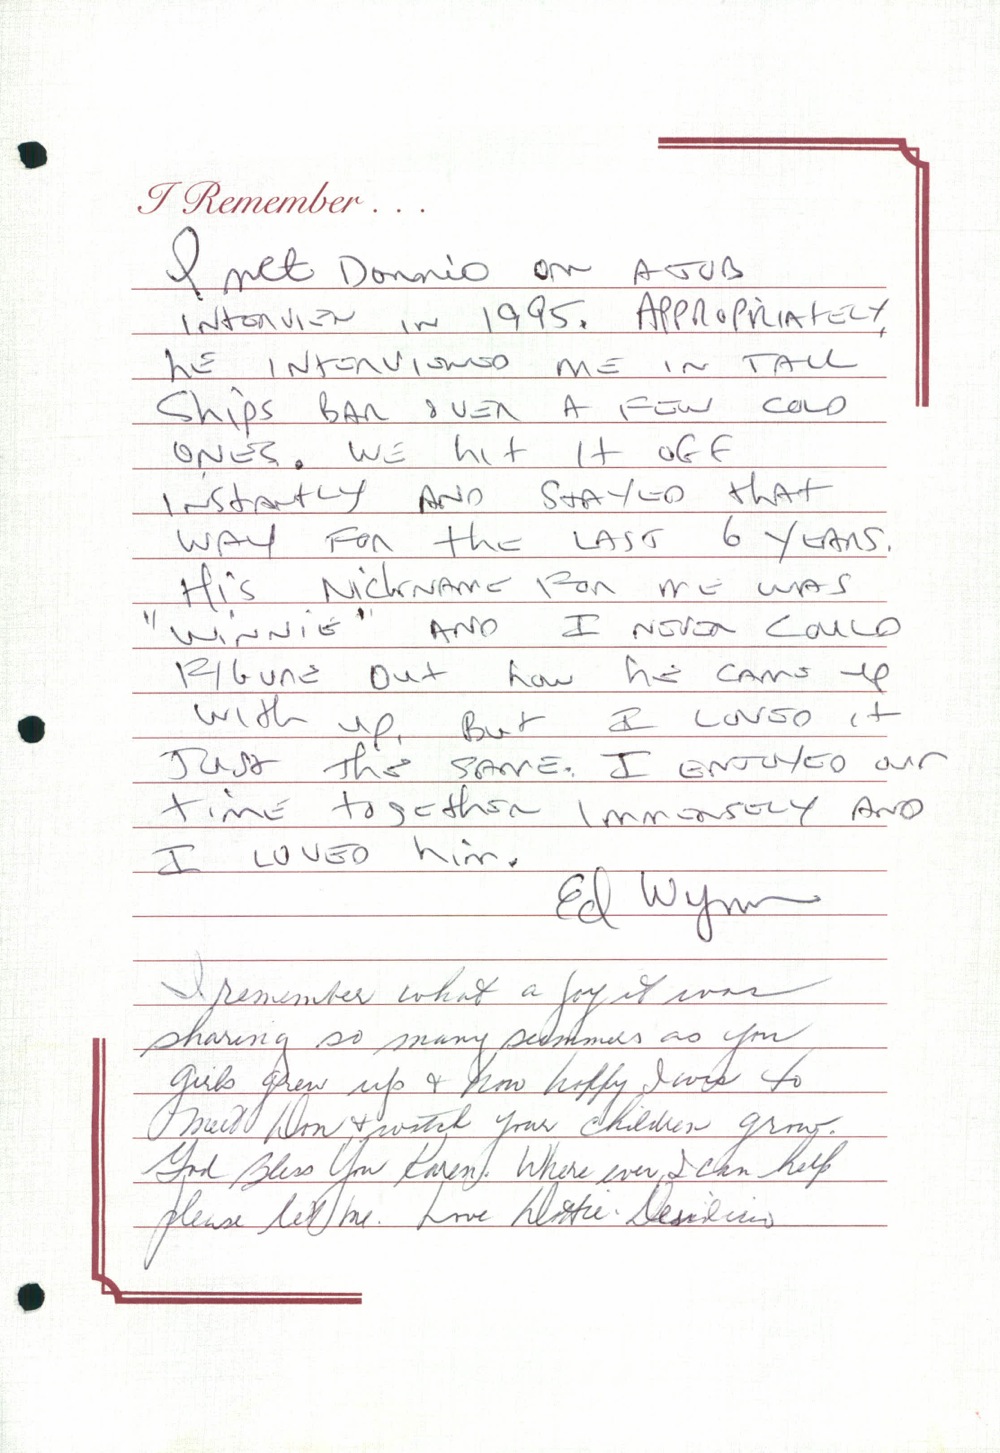 I Remember . . .
I met Donnie on A JOB
INTERVIEW IN 1995. APPROPRIATELY,
hE INTERVIEWED ME IN TALL
Ships BAR OVER A FEW COLD
ONES. WE hit It OFF
INStANtLY AND STAYED thAt
WAY FOR thE LAST 6 YEARS.
His NickNAME FOR ME WAS
"WiNNiE" AND I NEVER COULD
FIGURE Out how hE CAME up
With up, But I LOVED it
JUSt ThE SAME. I ENJOYED our
tiME togEthER IMMENSELY AND
I LOVED him.
Ed Wynn
I remember what a joy it was
sharing so many summers as you
girls grew up & how happy I was to
meet Don & watch your children grow.
God Bless You Karen. Where ever I can help
please let me. Love Dottie